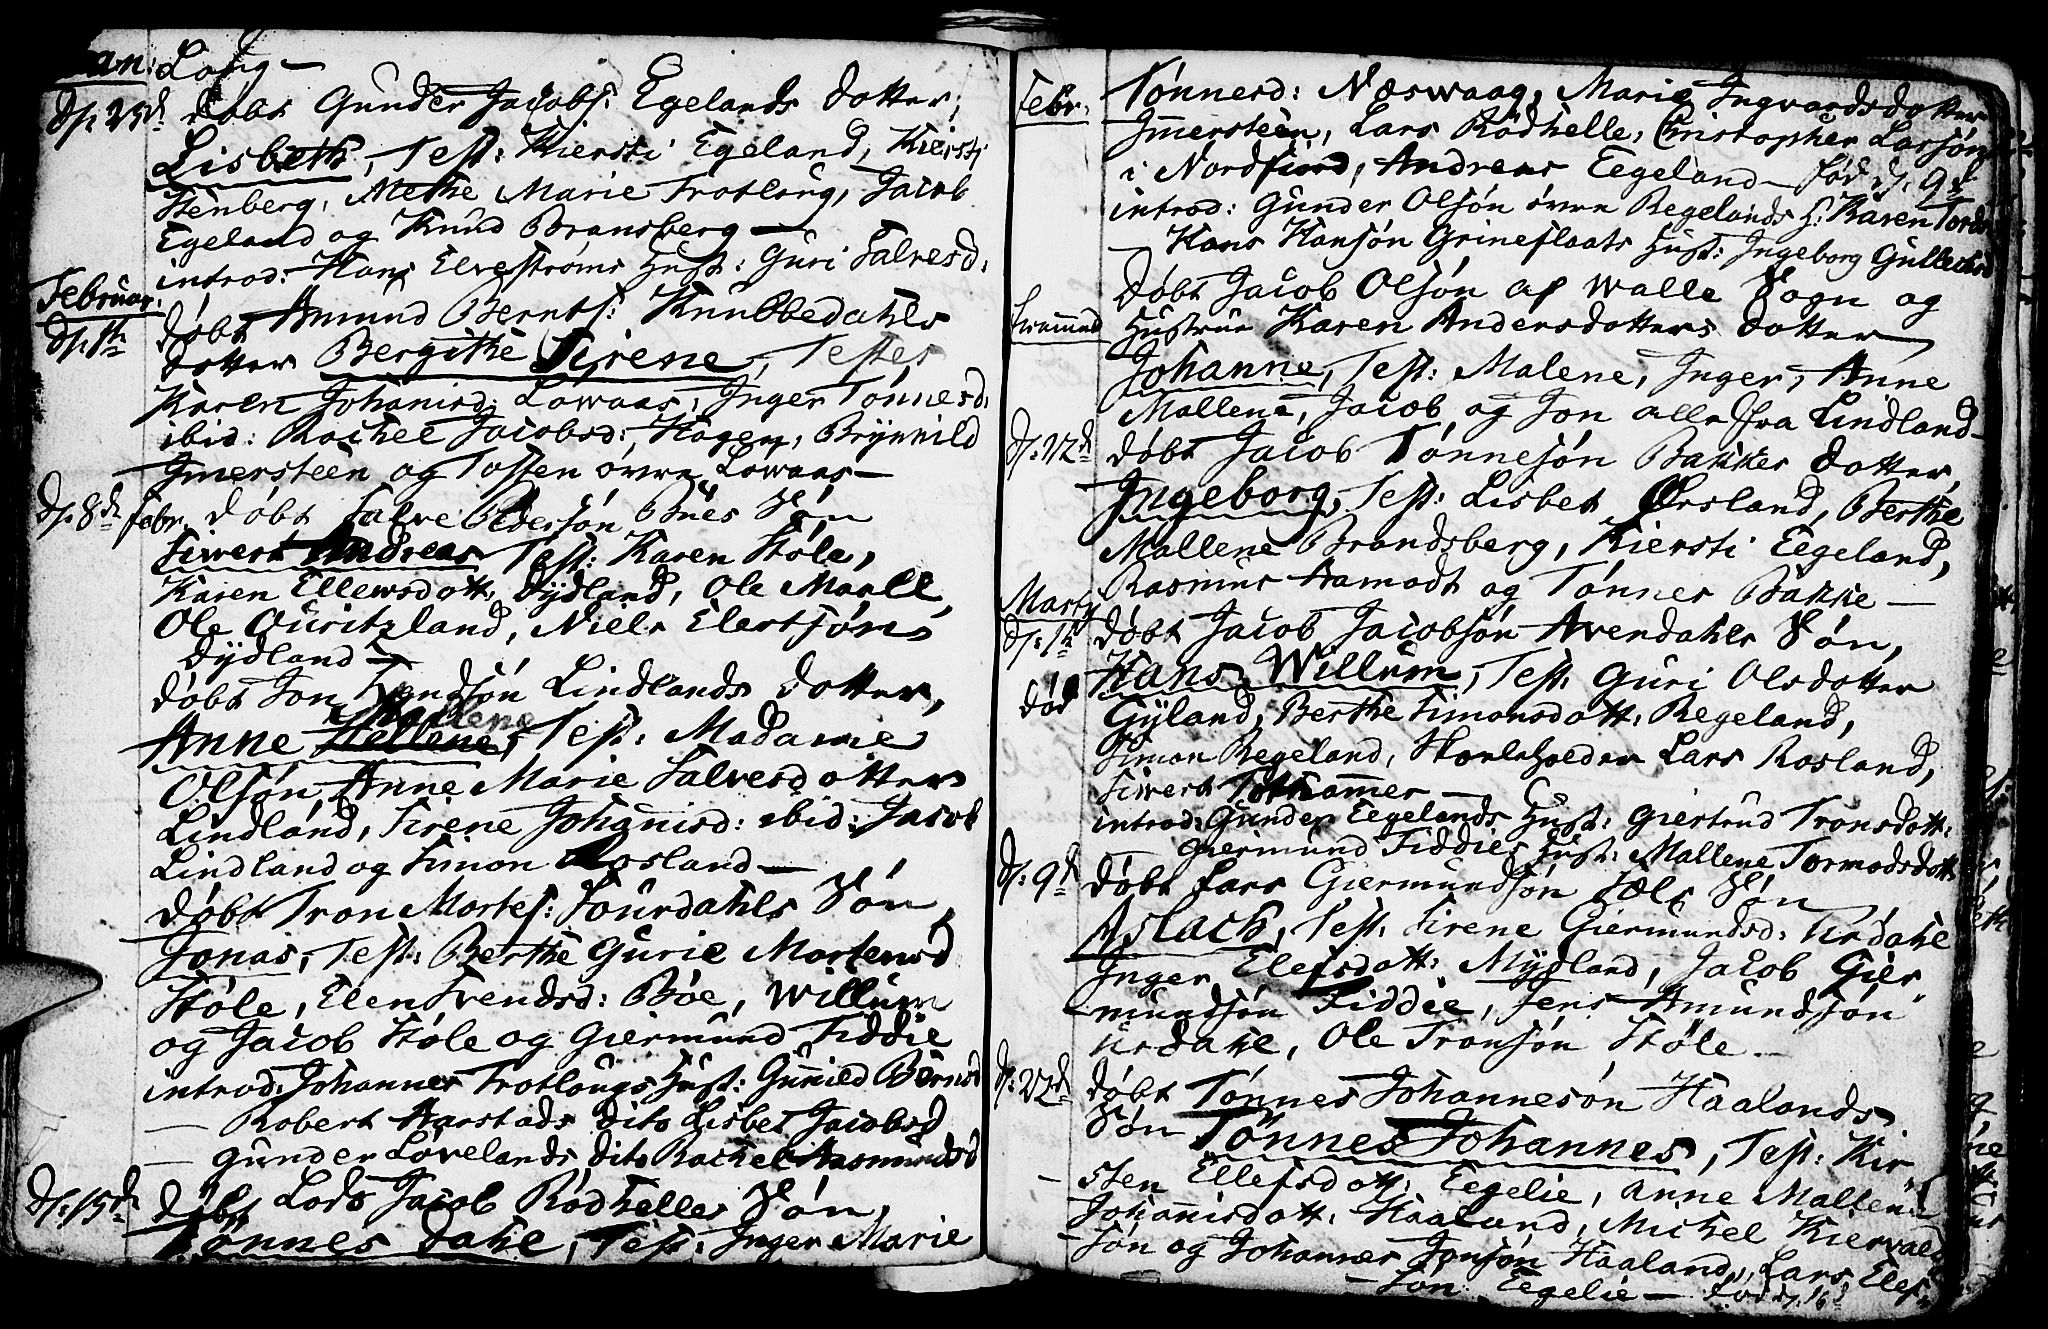 Jan: Loug—
D: 25d døbt Gunder Jacobs: Egelands dotter,
Lisbeth, Test: Kiersti Egeland, Kiersti
Stenberg, Methe Marie Trotloug, Jacob
Egeland og Knud Bransberg—
introd: Hans Elvestrøms Hust: Guri Salvesd:
Februar:
D: 1te døbt Amund Bernts: Knubbedahls
dotter Bergithe Sirene, Testes
Karen Johanisd: Lowaas, Inger Tønnesd:
ibid: Rachel Jacobsd: Hagen, Brynnild
Imersteen og Tosten øvre Lowaas—
D: 8de Febr. døbt Salve Pedersøn Bües Søn
Siwert Andreas Test: Karen Støle,
Karen Ellewsdott: Dydland, Ole Maall
Ole Ouritzland, Niels Elertsøn
Dydland—
døbt Jon Lindlands dotter,
Mallene
Anne Hellene, Test: Madame
Olsøn Anne Marie Salvesdotter
Lindland, Sirene Johanisd: ibid: Jacob
Lindland og Simon Rosland—
døbt Tron Mortes: Sourdahls Søn
Jonas, Test: Berthe Gurie Mortensd
Støle, Elen Svendsd: Bøe, Willum
og Jacob Støle og Giermund Fiddie
introd: Johannes Trotlougs Hust: Gunild Bernsd
— Robert Aarstads dito Lisbet Jacobsd
— Gunder Lovelands dito Rachel Aasmundsd
D: 15de døbt Lods Jacob Rødhelles Søn,
Tønnes Dahl, Test: Inger Marie
Febr: Tønnesd: Næswaag, Marie Ingvardsdotter
Imersteen, Lars Rødhelle, Christopher Larsøn
i Nordfiord, Andreas Eegeland— Fød d: 9d
introd: Gunder Olsøn øvre Regelands H: Karen Tords
— Hans Hansøn Grineflaats Hust: Ingeborg Gullichsd
døbt Jacob Olsøn af Walle Sogn og
Hustrue Karen Andersdotters dotter
Johanne, Test: Malene, Inger, Anne
Mallene, Jacob og Jon alle fra Lindland—
D: 22de døbt Jacob Tønnesøn Bakkes dotter,
Ingeborg, Test: Lisbet Ørsland, Berthe
Mallene Brandsberg, Kiersti Eegeland,
Rasmus Aamodt og Tønnes Bakke—
Marty
D: 1te døbt Jacob Jacobsøn Avendahls Søn,
død Hans Willum, Test: Guri Olsdotter
Gyland, Berthe Simonsdott: Regeland,
Simon Regeland, Skoleholder Lars Rosland,
Siwert Tothammer—
introd: Gunder Eegelands Hust: Giertrud Tronsdott:
Giermund Fiddies Hust: Mallene Tormodsdott:
D: 9de døbt Lars Giermundsøn Sæls Søn
Aslach, Test: Sirene Giermundsd: Urdahl
Inger Elefsdott: Mydland, Jacob Gier
mundsøn Fiddie, Jens Amundsøn
Urdahl, Ole Tronsøn Støle.—
D: 22de døbt Tønnes Johannesøn Haalands
Søn Tønnes Johannes, Test: Kir
sten Ellefsdott: Eegelie, Anne Mallene
Johanisdott: Haaland, Michel Kiervald
søn og Johannes Jonsøn Haaland, Lars Elef
søn Eegelie— Fød d: 16d